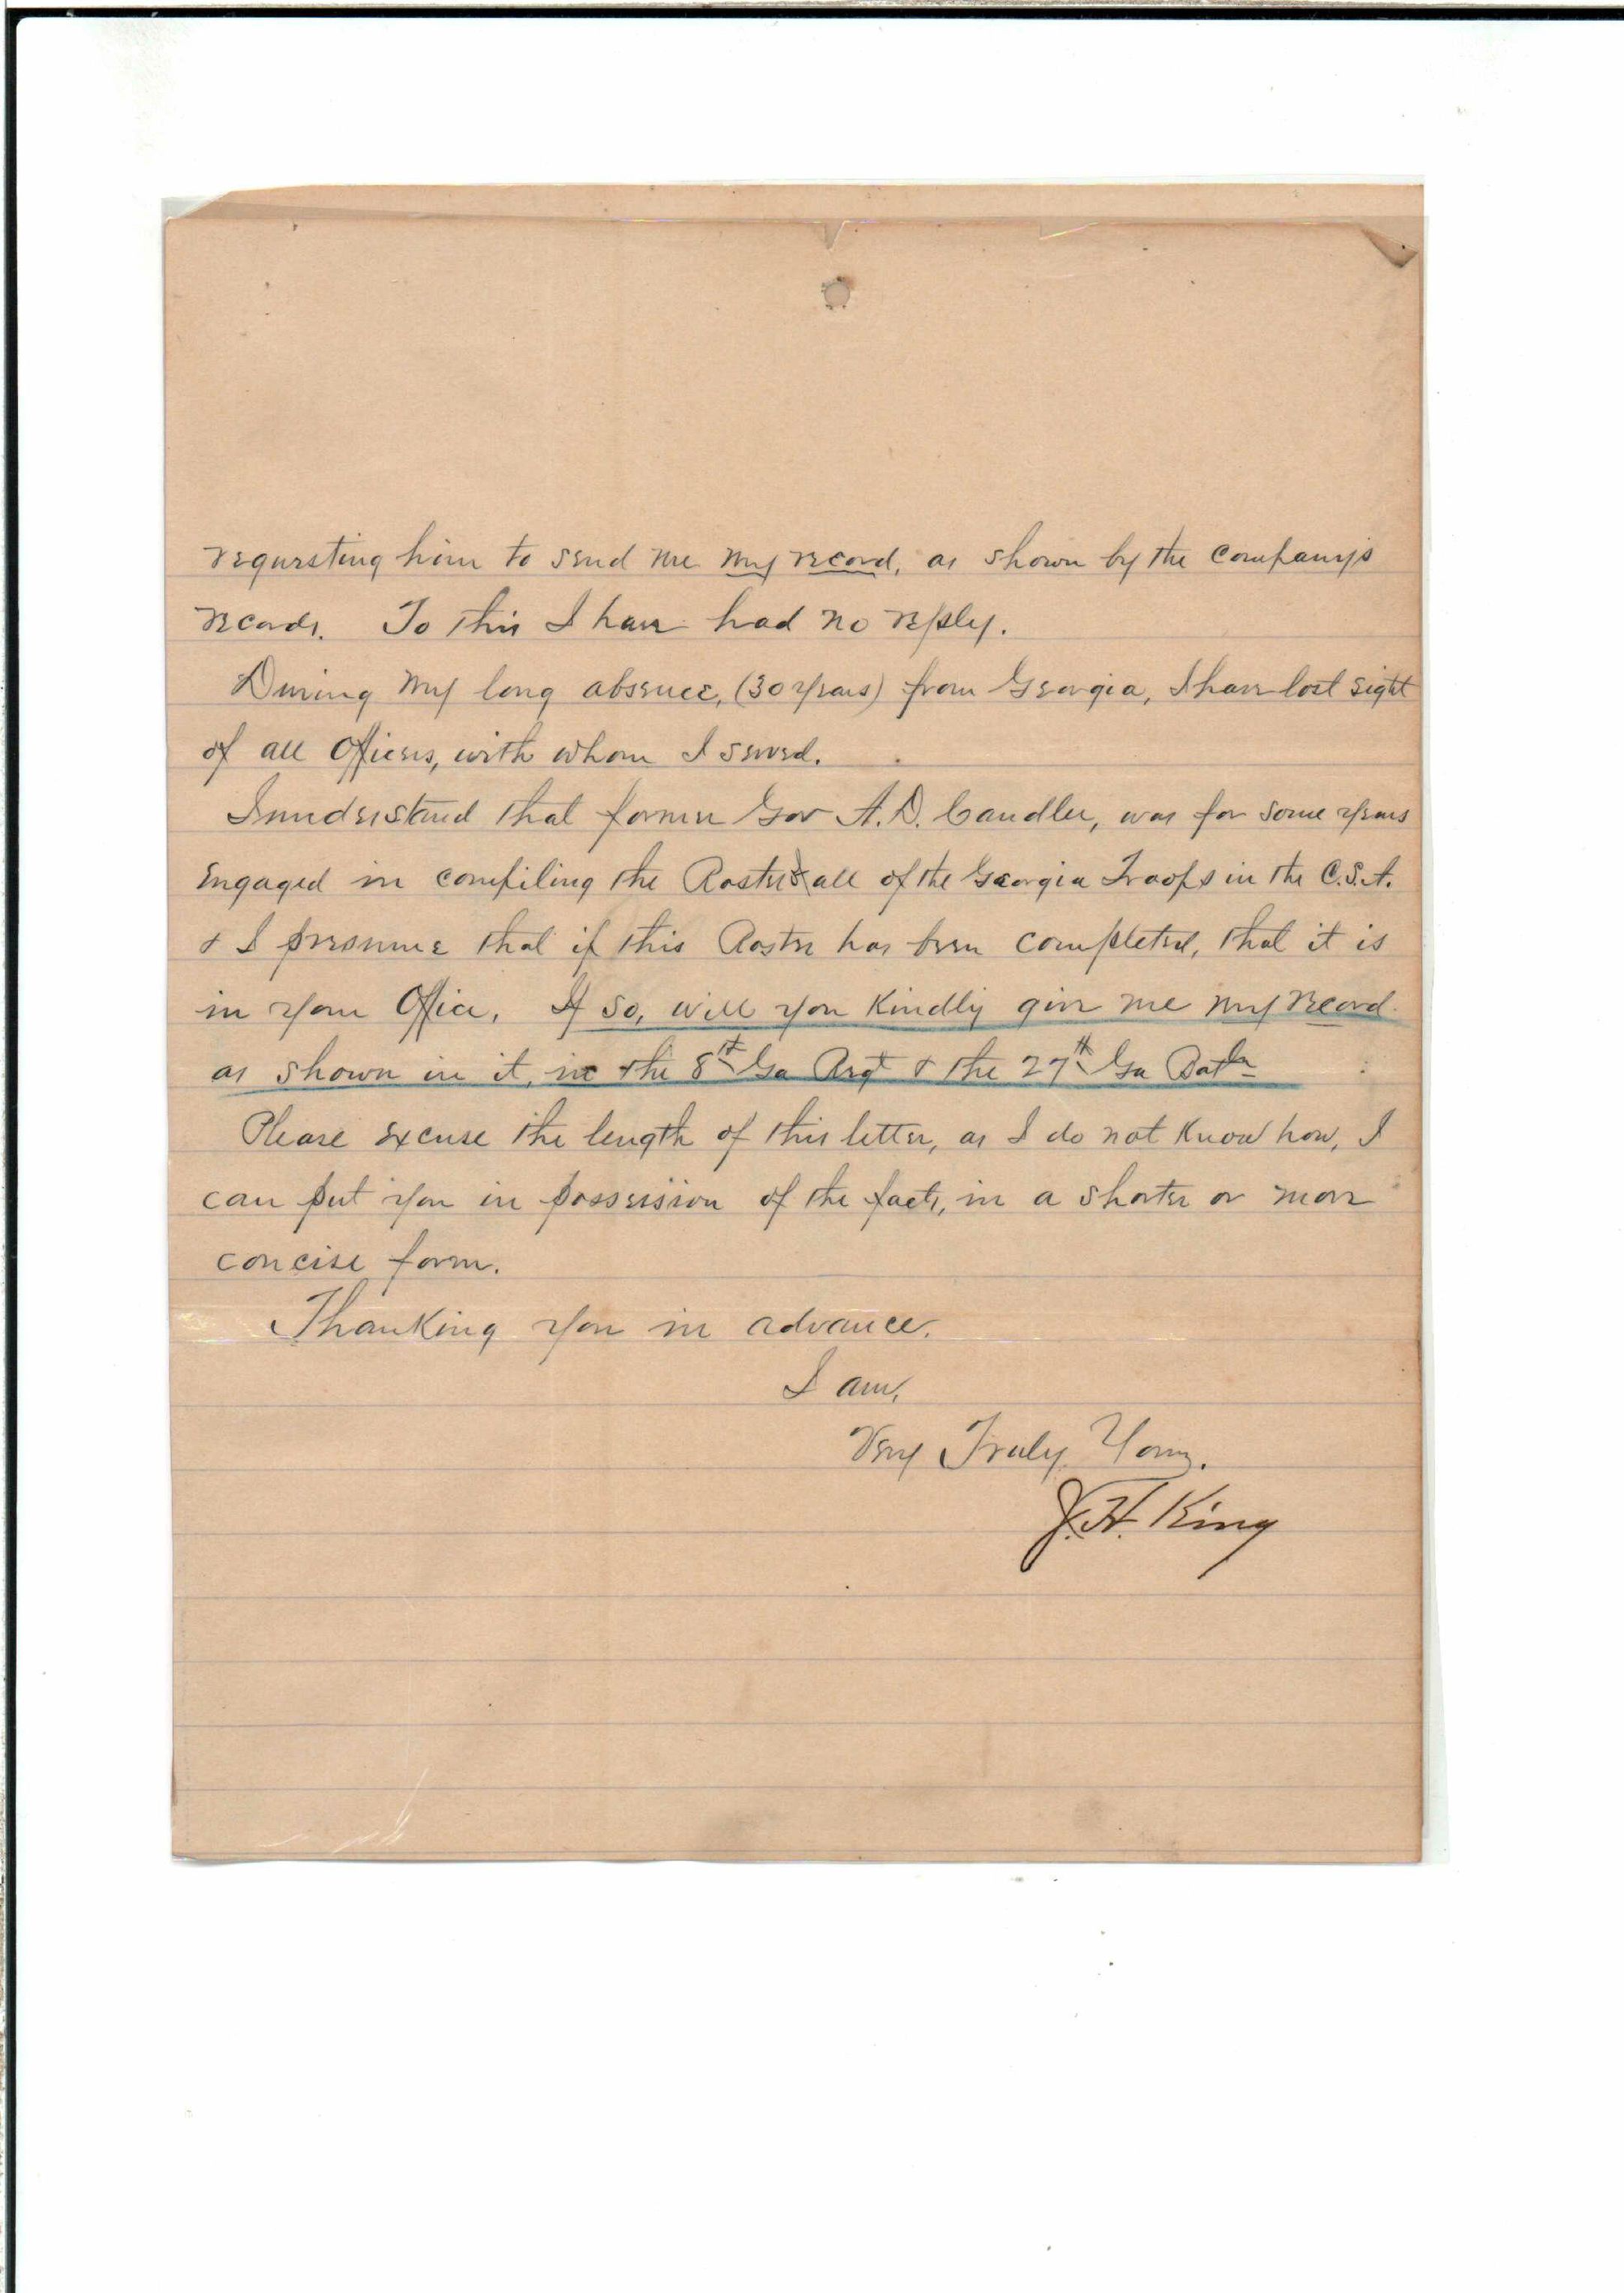 requesting him to send me my record, as shown by the company's
records. To this I have had no reply.
During my long absence, (30 years) from Georgia, I have lost sight
of all Officers, with whom I served.
I understand that former Gov A.D. Candler, was for some years
engaged in compiling the Roster & all of the Georgia Troops in the C.S.A.
& I presume that if this Roster has been completed, that it is
in your Office. If so, will you kindly give me my record
as shown in it, in the 8th Ga Regt & the 27th Ga Batln
Please excuse the length of this letter, as I do not know how, I
can put you in possession of the facts, in a shorter or more
concise form.
Thanking you in advance.
I am,
Very Truly Yours.
J.H. King